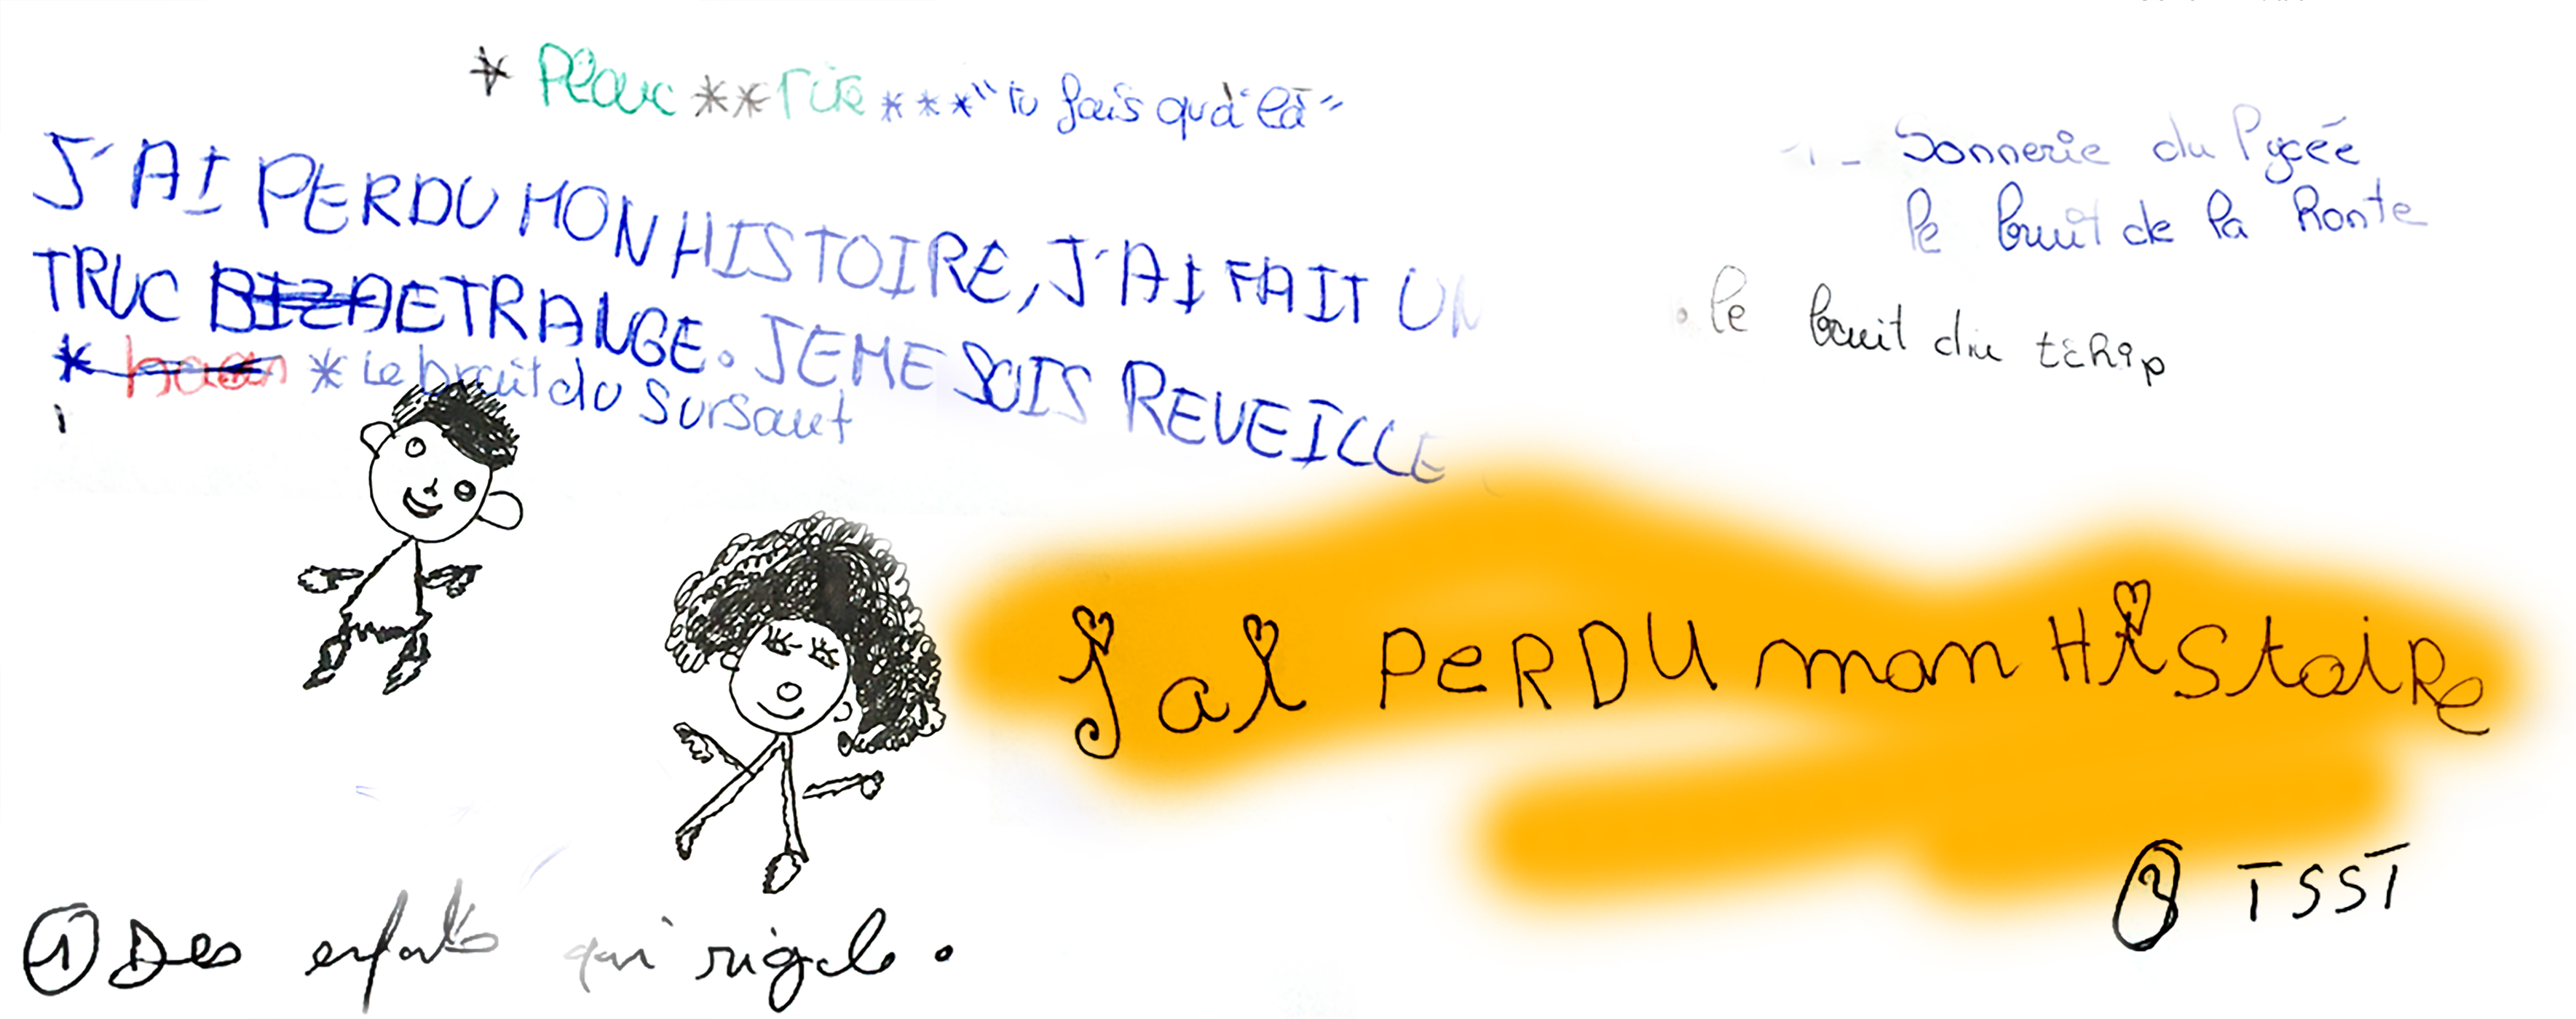 * Plouc **rire ***"tu fais qu'à là"
J'AI PERDU MON HISTOIRE, J'AI FAIT UN
TRUC BIZA ETRANGE. JE ME SUIS REVEILLE
* * Le bruit du sursaut
- Sonnerie du lycée
le bruit de la honte
. le bruit du tchip
J'ai PERDU mon HiStoiRe
① Des enfants qui rigole.
② TSST